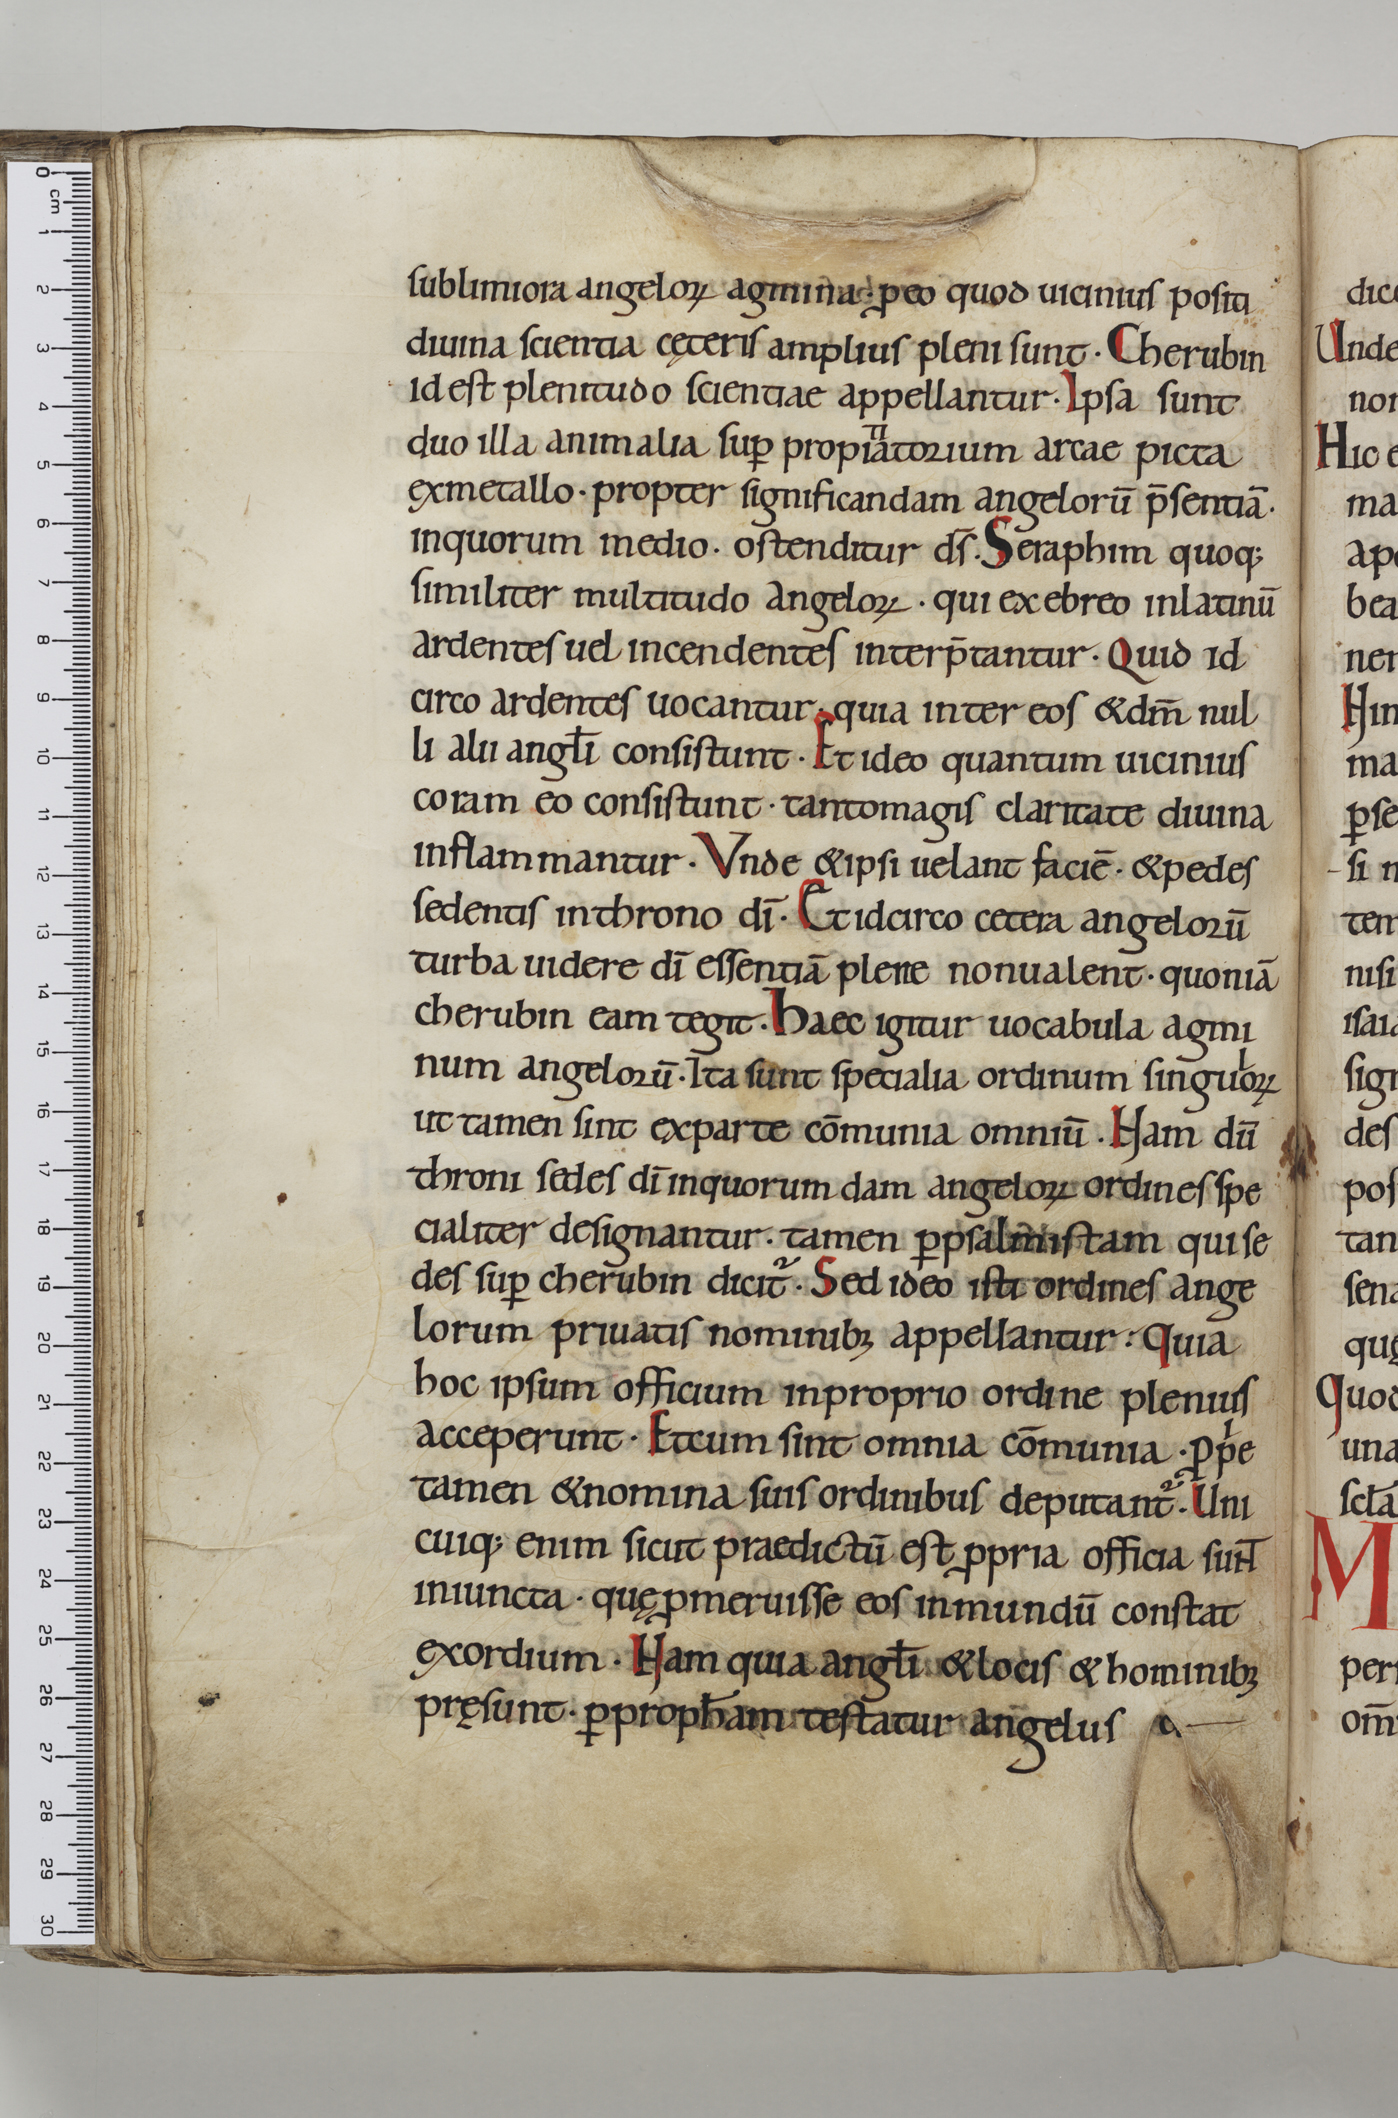 sublimiora angeloꝝ agmina· ꝓeo quod uicinius positi
diuina scientia cęteris amplius pleni sunt· Cherubin
id est plenitudo scientiae appellantur· Ipsa sunt
duo illa animalia suꝑ propitiatorium arcae picta
exmetallo· propter significandam angelorū p̄sentiā·
inquorum medio· ostenditur ds̄· Seraphim quoq;
similiter multitudo angeloꝝ· qui ex ebreo inlatinū
ardentes uel incendentes interp̄tantur· Quid id
circo ardentes uocantur· quia inter eos &dm̄ nul
li alii angl̄i consistunt· Et ideo quantum uicinius
coram eo consistunt· tantomagis claritate diuina
inflammantur· Vnde &ipsi uelant faciē· &pedes
sedentis inthrono dī· Et idcirco cetera angelorū
turba uidere dī essentiā plene nonualent· quoniā
cherubin eam tegit· Haec igitur uocabula agmi
num angelorū· Ita sunt specialia ordinum singuloꝝ
ut tamen sint exparte cōmunia omniū· Nam dū
throni sedes dī inquorumdam angeloꝝ ordines spe
cialiter designantur· tamen ꝑpsalmistam qui se
des suꝑ cherubin dicit᷑· Sed ideo isti ordines ange
lorum priuatis nominibꝫ appellantur· Quia
hoc ipsum officium inproprio ordine plenius
acceperunt· Etcum sint omnia cōmunia· ꝓp̍e
tamen &nomina suis ordinibus deputant᷑· Uni
cuiq; enim sicut praedictū est ꝓpria officia sunt
iniuncta· quę ꝓmeruisse eos inmundū constat
exordium· Nam quia angl̄i &locis &hominibꝫ
pręsunt· ꝑproph̄am testatur angelus
dic
Unde
non
Hic e
ma
ap
bea
ner
Hin
ma
ꝑse
si n
tem
nisi
isai
sign
des
pos
tan
sena
quę
Quod
una
scl̄a
M
per
om̄